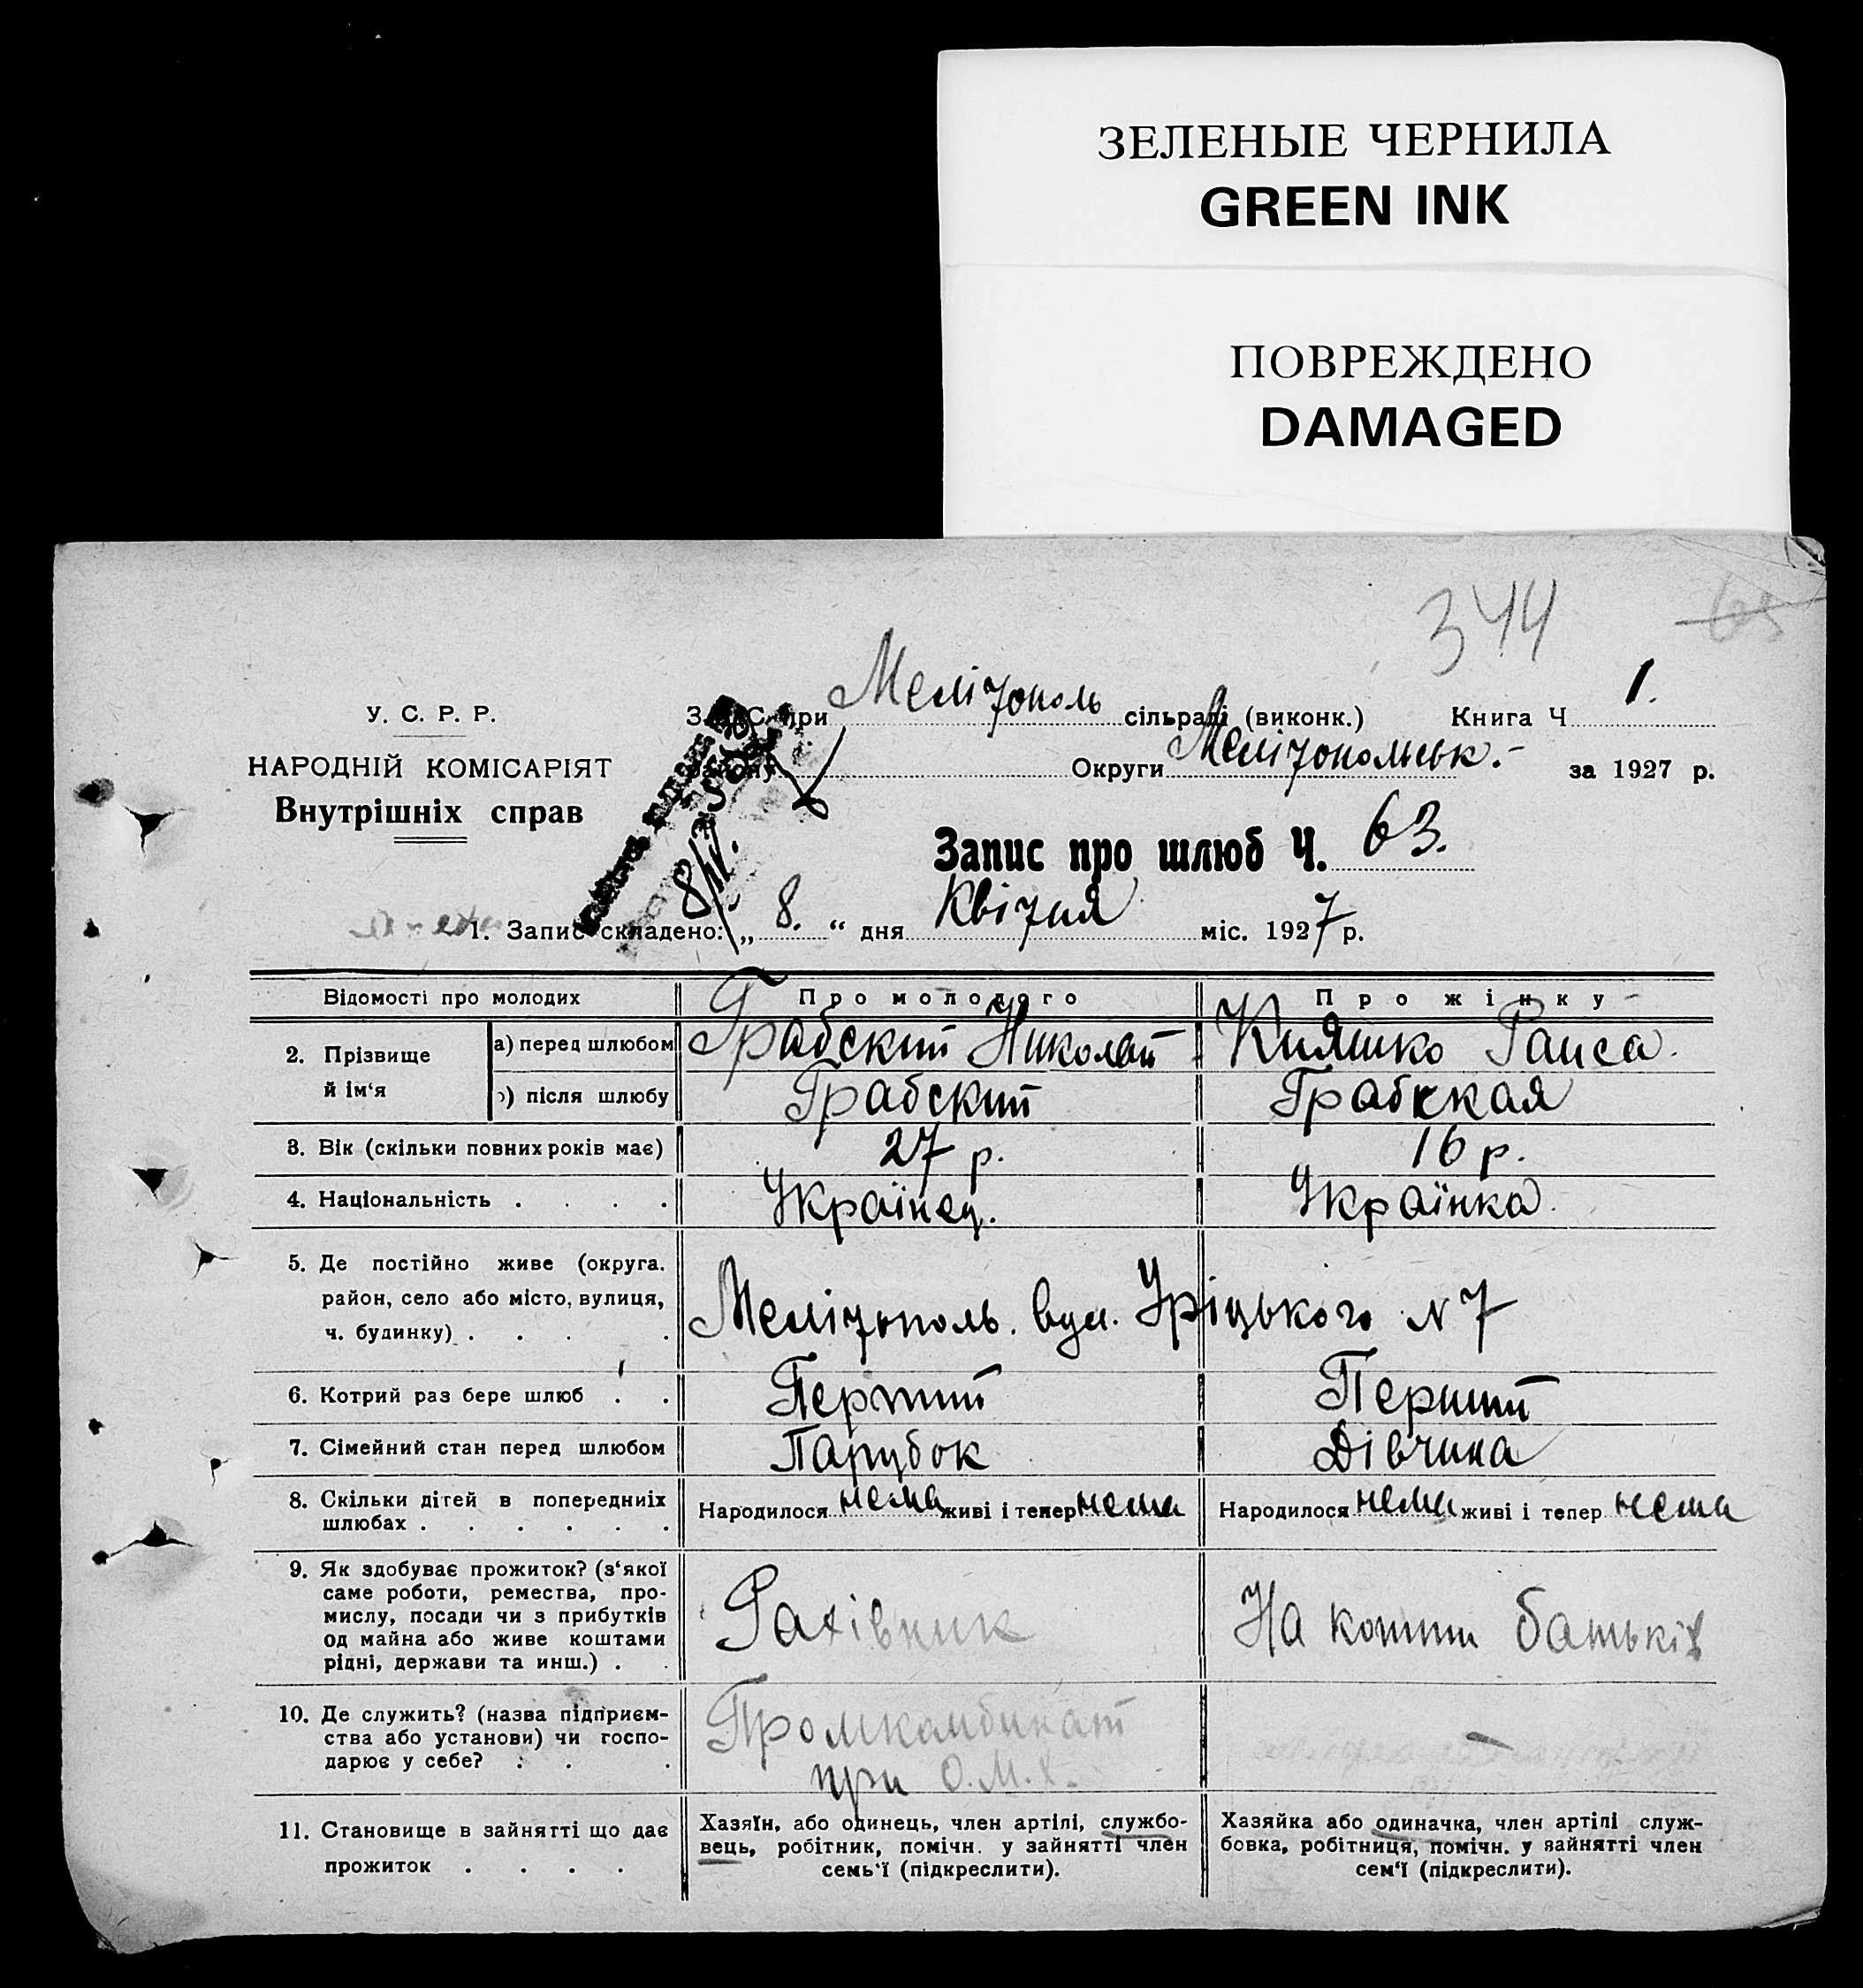 ЗЕЛЕНЫЕ ЧЕРНИЛА
GREEN INK
ПОВРЕЖДЕНО
DAMAGED
344
65
У. С. Р. Р.
НАРОДНІЙ КОМІСАРІЯТ
Внутрішніх справ
при Мелітополь сільраді (виконк.) Книга Ч 1.
району Округи Мелітопольськ. за 1927 р.
Запис про шлюб Ч. 63.
8/IV.
1. Запис складено: „ 8. “ дня Квітня міс. 1927 р.
Відомості про молодих Про молодого Про жінку
2. Прізвище й ім‘я а) перед шлюбом Грабский Николай Кияшко Раиса.
) після шлюбу Грабский Грабская
3. Вік (скільки повних років має) 27 р. 16 р.
4. Національність . . . . Українец. Українка.
5. Де постійно живе (округа.
район, село або місто, вулиця,
ч. будинку) . . . . Мелітополь. вул. Уріцького N 7
6. Котрий раз бере шлюб . . Перший Перший
7. Сімейний стан перед шлюбом Парубок Дівчина
8. Скільки дітей в попередниіх
шлюбах . . . . . . Народилося нема живі і тепер нема Народилося нема живі і тепер нема
9. Як здобуває прожиток? (з‘якої
саме роботи, ремества, про-
мислу, посади чи з прибутків
од майна або живе коштами
рідні, держави та инш.) . .
Рахівник На кошти батьків
10. Де служить? (назва підприєм-
ства або установи) чи госпо-
дарює у себе? . . .
Промкомбинат
при О.М.Х. —
11. Становище в зайнятті що дає
прожиток . . . .
Хазяїн, або одинець, член артілі, службо-
вець, робітник, помічн. у зайнятті член
семь‘ї (підкреслити).
Хазяйка або одиначка, член артілі служ-
бовка, робітниця, помічн. у зайнятті член
сем‘ї (підкреслити).